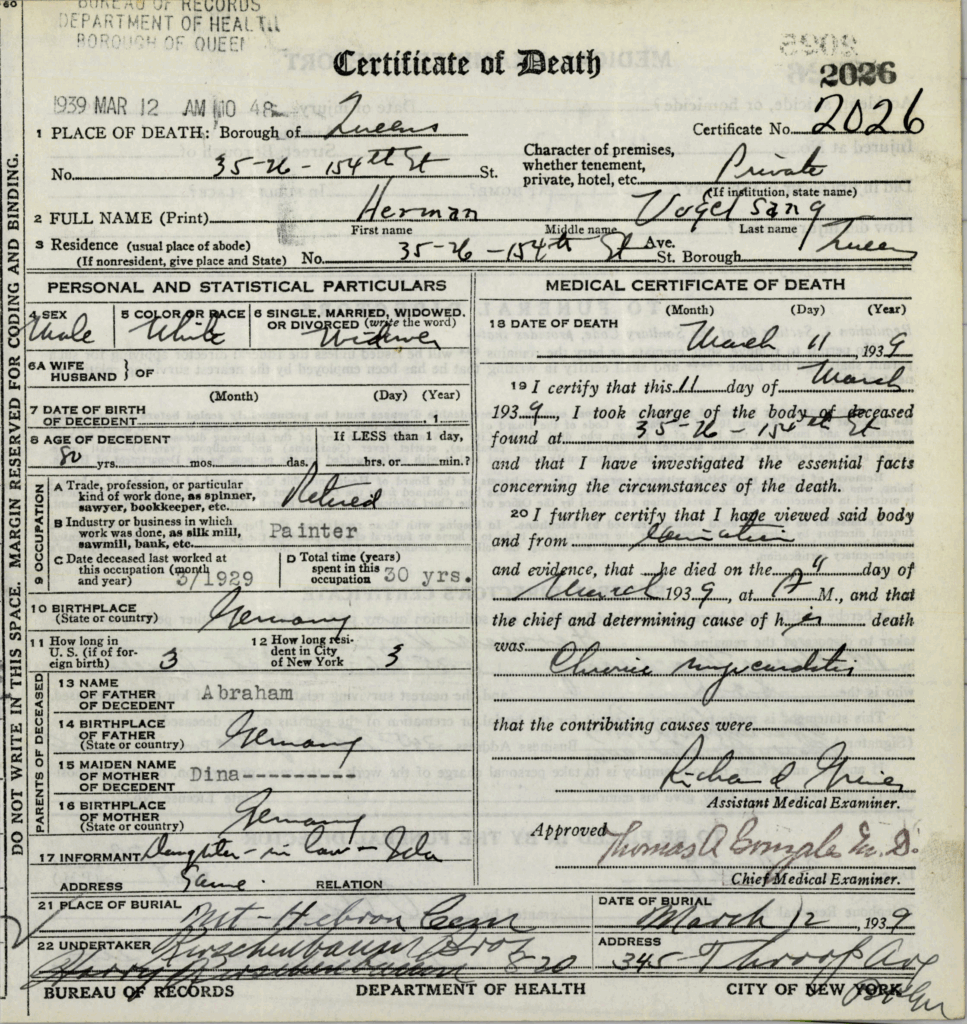 60
BUREAU OF RECORDS
DEPARTMENT OF HEALTH
BOROUGH OF QUEEN
Certificate of Death
2026
1939 MAR 12 AM 10 48
1 PLACE OF DEATH: Borough of Queens
Certificate No. 2026
No. 35-26-154th St St.
Character of premises, whether tenement, private, hotel, etc. Private
(If institution, state name)
2 FULL NAME (Print) Herman Vogelsang
First name Middle name Last name
3 Residence (usual place of abode) No. 35-26-154th St Ave. St. Borough Queens
(If nonresident, give place and State)
DO NOT WRITE IN THIS SPACE. MARGIN RESERVED FOR CODING AND BINDING.
PERSONAL AND STATISTICAL PARTICULARS
4 SEX Male
5 COLOR OR RACE White
6 SINGLE, MARRIED, WIDOWED, OR DIVORCED (write the word) Widower
6A WIFE HUSBAND } OF
7 DATE OF BIRTH OF DECEDENT (Month) (Day) (Year)
, 1
8 AGE OF DECEDENT 80 yrs. mos. das.
If LESS than 1 day, hrs. or min.?
9 OCCUPATION
A Trade, profession, or particular kind of work done, as spinner, sawyer, bookkeeper, etc. Retired
B Industry or business in which work was done, as silk mill, sawmill, bank, etc. Painter
C Date deceased last worked at this occupation (month and year) 3/1929
D Total time (years) spent in this occupation 30 yrs.
10 BIRTHPLACE (State or country) Germany
11 How long in U. S. (if of foreign birth) 3
12 How long resident in City of New York 3
PARENTS OF DECEASED
13 NAME OF FATHER OF DECEDENT Abraham
14 BIRTHPLACE OF FATHER (State or country) Germany
15 MAIDEN NAME OF MOTHER OF DECEDENT Dina---------
16 BIRTHPLACE OF MOTHER (State or country) Germany
17 INFORMANT Daughter-in law-Ida
ADDRESS Same. RELATION
MEDICAL CERTIFICATE OF DEATH
(Month) (Day) (Year)
18 DATE OF DEATH March 11, 1939
19 I certify that this 11 day of March
1939, I took charge of the body of deceased
found at 35-26-154th St
and that I have investigated the essential facts
concerning the circumstances of the death.
20 I further certify that I have viewed said body
and from
and evidence, that he died on the day of
March 1939, at A M., and that
the chief and determining cause of his death
was Chronic myocarditis
that the contributing causes were
Richard
Assistant Medical Examiner.
Approved Thomas A Gonzales M. D.
Chief Medical Examiner.
21 PLACE OF BURIAL Mt-Hebron Cem
DATE OF BURIAL March 12, 1939
22 UNDERTAKER Kirschenbaum Bros
Harry Kirschenbaum 820
ADDRESS 345-Throop Ave
Bklyn
BUREAU OF RECORDS DEPARTMENT OF HEALTH CITY OF NEW YORK